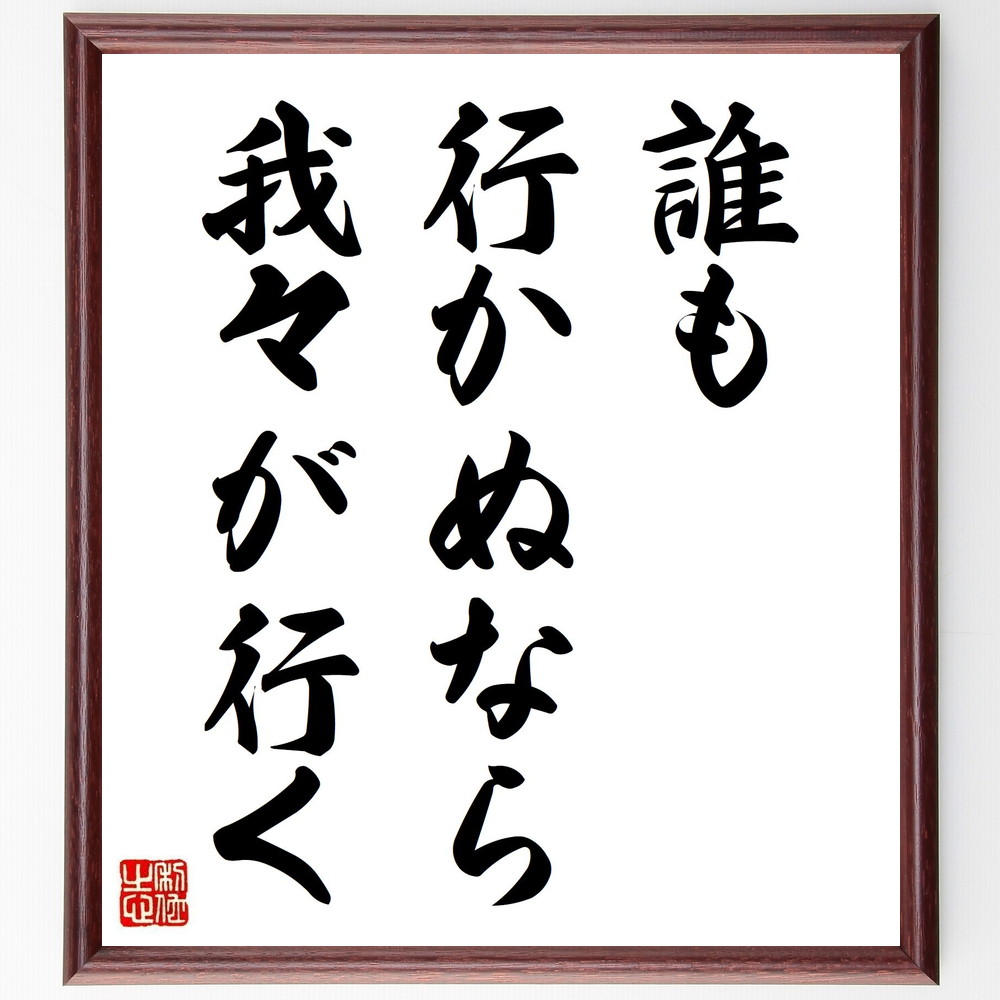 誰も
行かぬなら
我々が行く